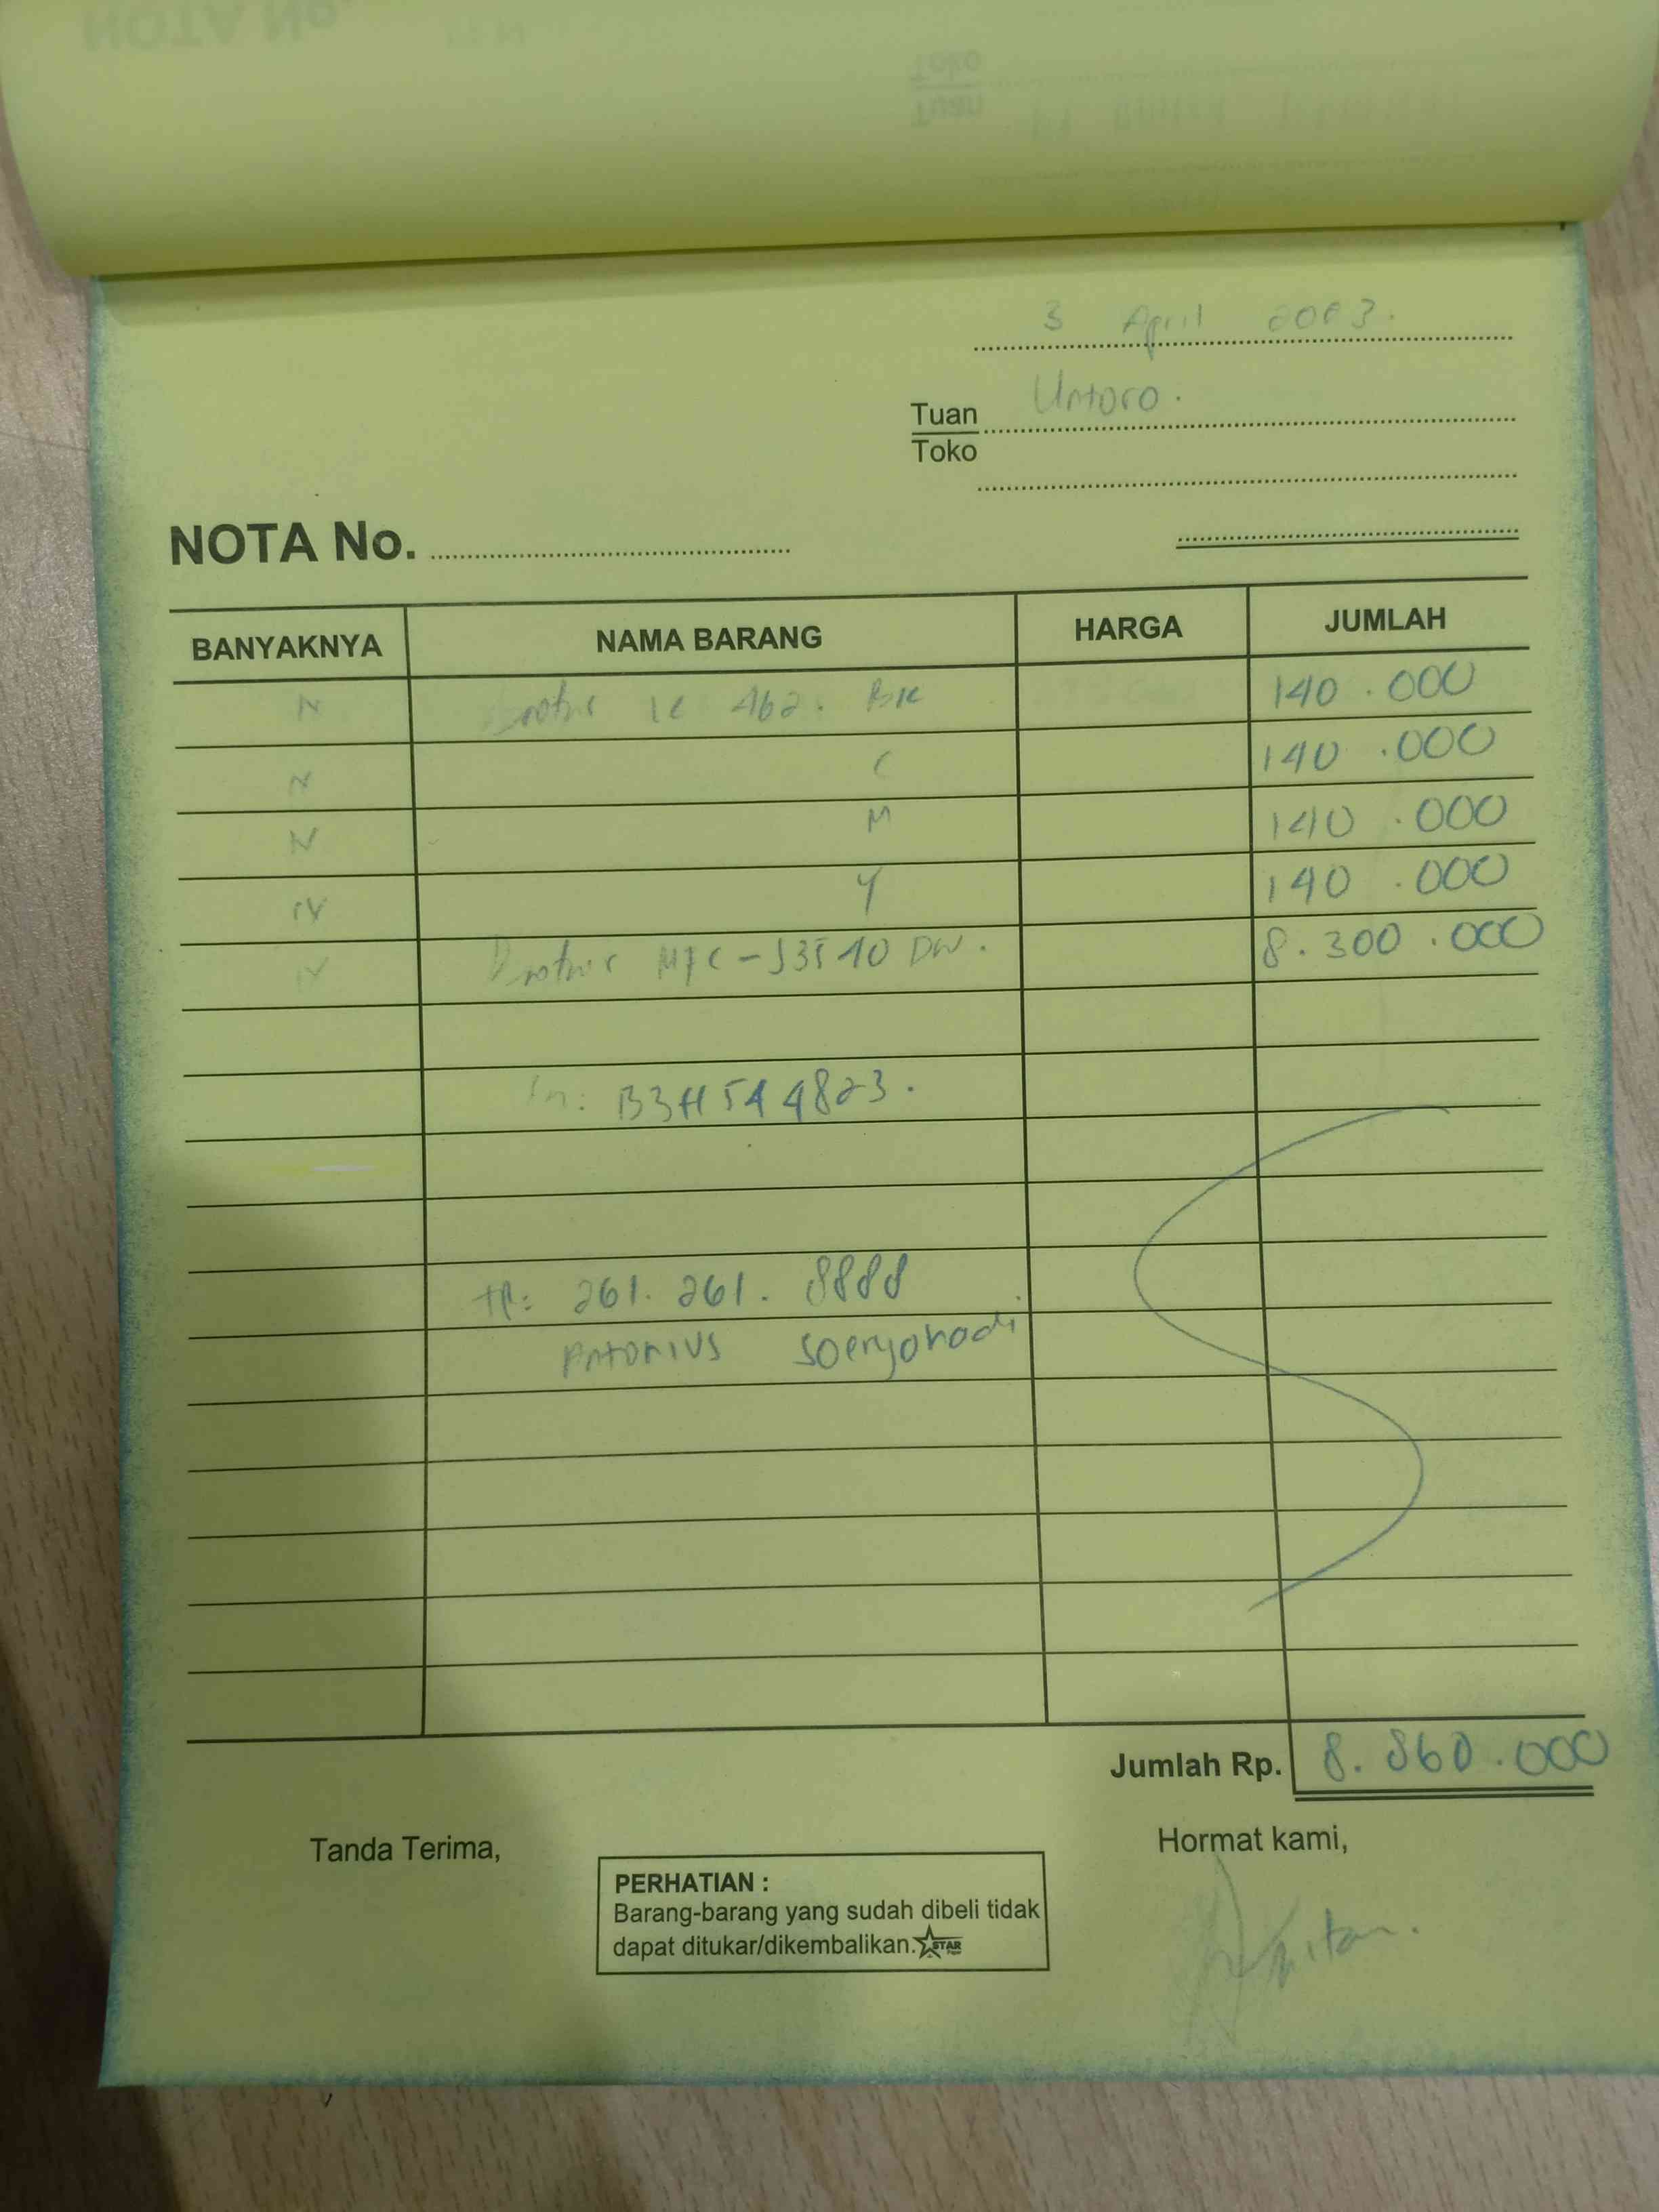 NOTA No.
Toko
Tuan
3 April 2023.
Tuan Untoro.
Toko
NOTA No.
BANYAKNYA NAMA BARANG HARGA JUMLAH
Brother LC 462. BK 140.000
C 140.000
M 140.000
Y 140.000
Brother MFC-J3540 DW. 8.300.000
Sn: B3H544823.
261.261.8888
Antonius Soeryohadi
Jumlah Rp. 8.860.000
Tanda Terima, Hormat kami,
PERHATIAN :
Barang-barang yang sudah dibeli tidak
dapat ditukar/dikembalikan. STAR